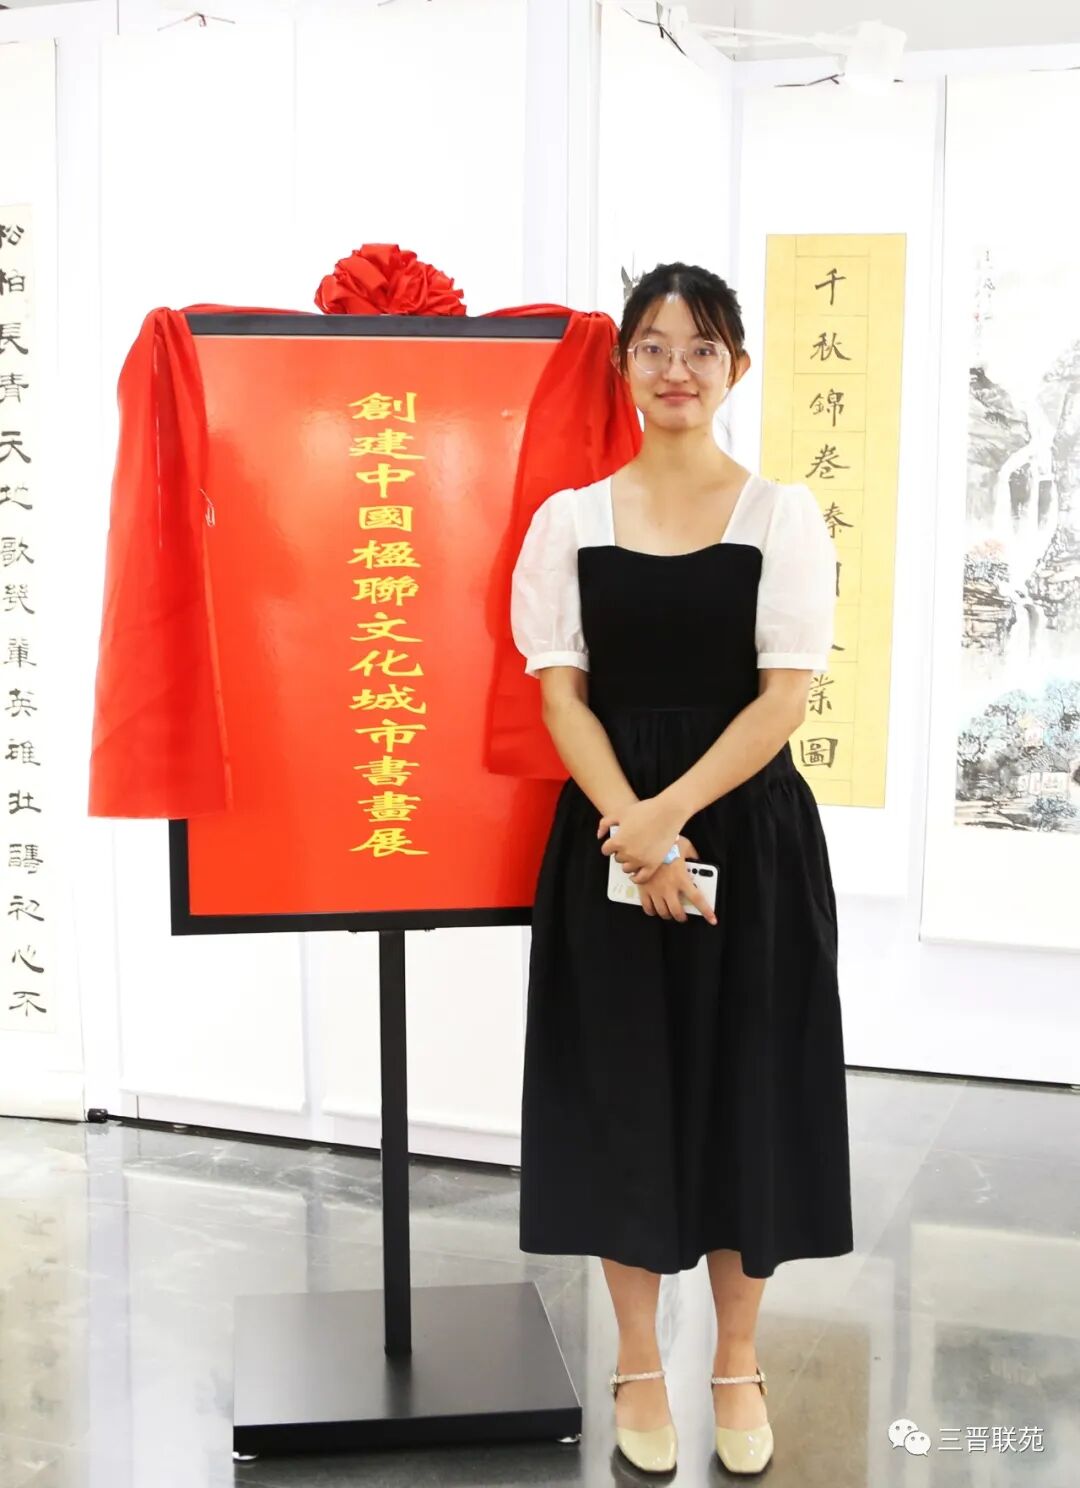 松柏長青天地歌頌軰英雄壮
初心不
創建中國楹聯文化城市書畫展
千秋錦卷秦
業圖
三晋联苑